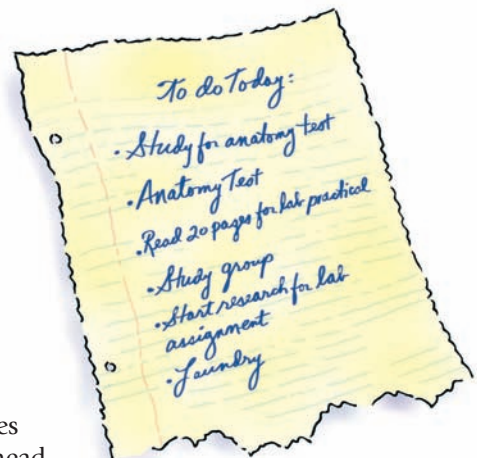 To do Today:
• Study for anatomy test
• Anatomy Test
• Read 20 pages for lab practical
• Study group
• Start research for lab
assignment
• Laundry
es
nead